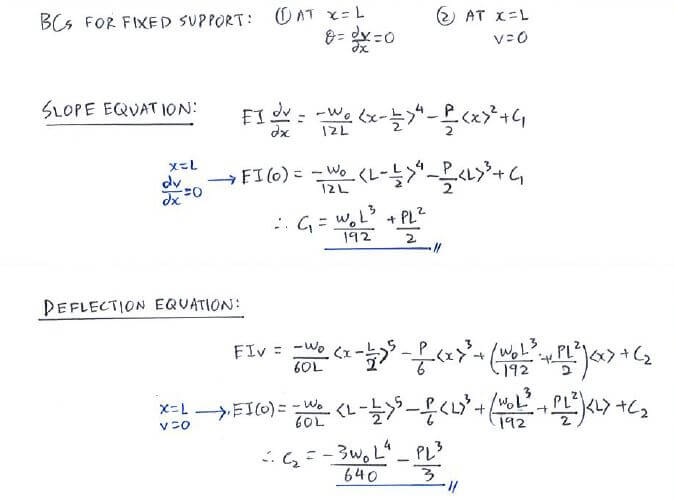 BCs FOR FIXED SUPPORT: ① AT x=L ② AT x=L
θ=dv/dx=0 v=0
SLOPE EQUATION: EI dv/dx = -w₀/12L <x-L/2>⁴ - P/2 <x>² + C₁
x=L
dv/dx=0 → EI(0) = -w₀/12L <L-L/2>⁴ - P/2 <L>³ + C₁
∴ C₁ = w₀L³/192 + PL²/2 //
DEFLECTION EQUATION:
EIv = -w₀/60L <x-L/2>⁵ - P/6 <x>³ + (w₀L³/192 + PL²/2)<x> + C₂
x=L
v=0 → EI(0) = -w₀/60L <L-L/2>⁵ - P/6 <L>³ + (w₀L³/192 + PL²/2)<L> + C₂
∴ C₂ = -3w₀L⁴/640 - PL³/3 //